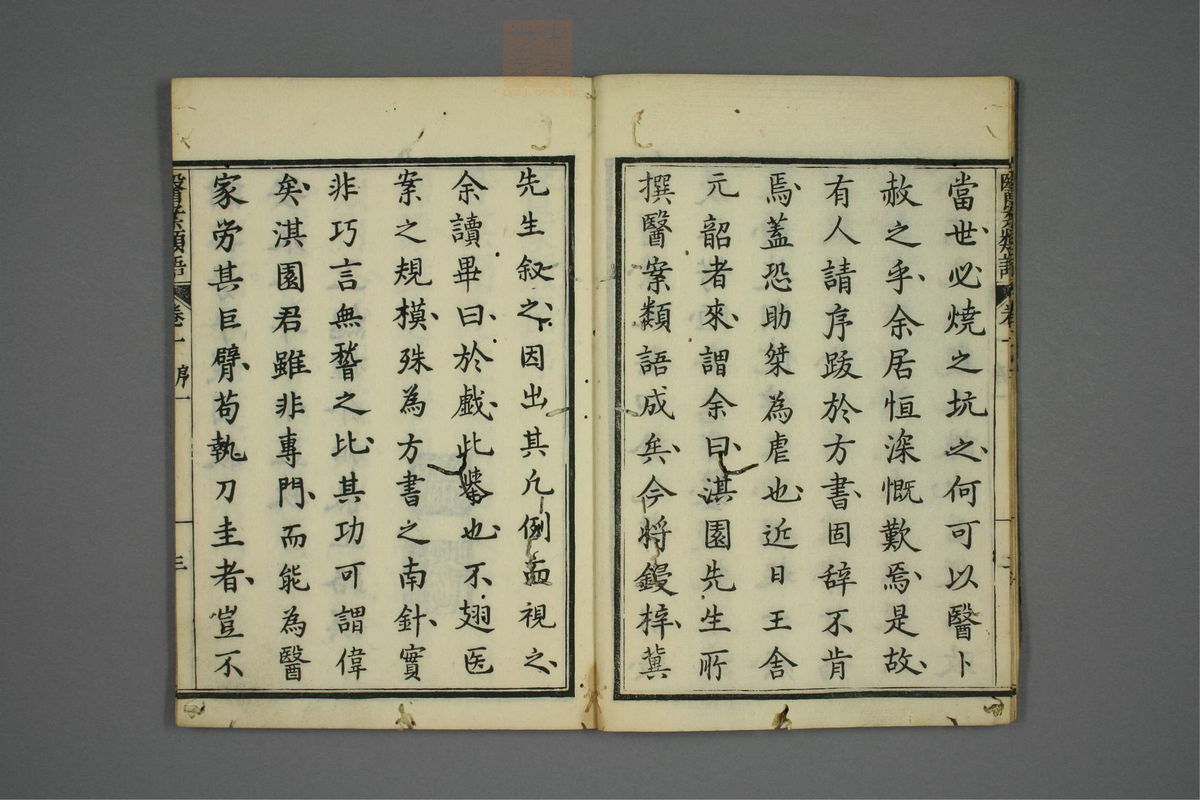 當世必燒之坑之何可以醫卜
赦之乎余居恒深慨歎焉是故
有人請序跋於方書固辞不肯
焉蓋恐助桀為虐也近日王舍
元韶者來謂余曰淇園先生所
撰醫案類語成矣今将鏝梓冀
先生叙之因出其凡例面視之
余讀畢曰於戲此舉也不翅医
案之規模殊為方書之南針實
非巧言無稽之比其功可謂偉
矣淇園君雖非專門而能為醫
家劳其巨臂苟執刀圭者豈不
醫案類語 卷一 序 三